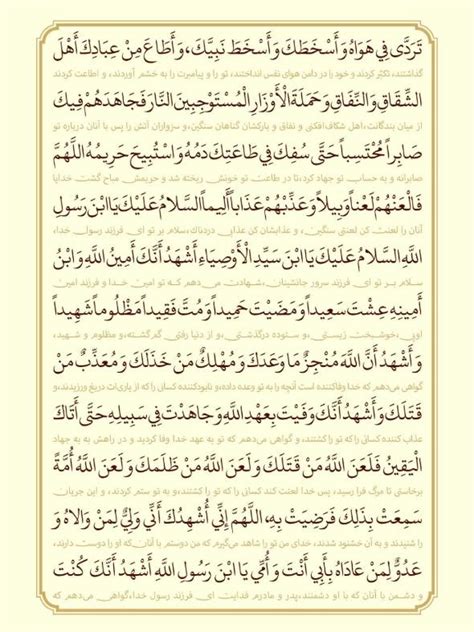 تَرَدَّى فِي هَوَاهُ وَأَسْخَطَكَ وَأَسْخَطَ نَبِيَّكَ، وَأَطَاعَ مِنْ عِبَادِكَ أَهْلَ
گذاشتند، تکبّر کردند و خود را در دامن هوای نفس انداختند، تو را و پیامبرت را به خشم آوردند، و اطاعت کردند
الشِّقَاقِ وَالنِّفَاقِ وَحَمَلَةَ الْأَوْزَارِ الْمُسْتَوْجِبِينَ النَّارَ فَجَاهَدَهُمْ فِيكَ
از میان بندگانت، اهل شکاف‌افکنی و نفاق و بارکشان گناهان سنگین، و سزاواران آتش را پس با آنان درباره تو
صَابِراً مُحْتَسِباً حَتَّى سُفِكَ فِي طَاعَتِكَ دَمُهُ وَاسْتُبِيحَ حَرِيمُهُ اللَّهُمَّ
صابرانه و به حساب تو جهاد کرد، تا در طاعت تو خونش ریخته شد و حریمش مباح گشت خدایا
فَالْعَنْهُمْ لَعْناً وَبِيلاً وَعَذِّبْهُمْ عَذَاباً أَلِيماً السَّلَامُ عَلَيْكَ يَا ابْنَ رَسُولِ
آنان را لعنت کن لعنتی سنگین، و عذابشان کن عذابی دردناک، سلام بر تو ای فرزند رسول خدا،
اللَّهِ السَّلَامُ عَلَيْكَ يَا ابْنَ سَيِّدِ الْأَوْصِيَاءِ أَشْهَدُ أَنَّكَ أَمِينُ اللَّهِ وَابْنُ
سلام بر تو ای فرزند سرور جانشینان، شهادت می‌دهم که تو امین خدا و فرزند امین
أَمِينِهِ عِشْتَ سَعِيداً وَمَضَيْتَ حَمِيداً وَمُتَّ فَقِيداً مَظْلُوماً شَهِيداً
اویی، خوشبخت زیستی، و ستوده درگذشتی، و از دنیا رفتی گم‌گشته، و مظلوم و شهید،
وَأَشْهَدُ أَنَّ اللَّهَ مُنْجِزٌ مَا وَعَدَكَ وَمُهْلِكٌ مَنْ خَذَلَكَ وَمُعَذِّبٌ مَنْ
گواهی می‌دهم که خدا وفاکننده است آنچه را به تو وعده داده، و نابودکننده کسانی را که از یاری‌ات دریغ ورزیدند، و
قَتَلَكَ وَأَشْهَدُ أَنَّكَ وَفَيْتَ بِعَهْدِ اللَّهِ وَجَاهَدْتَ فِي سَبِيلِهِ حَتَّى أَتَاكَ
عذاب کننده کسانی را که تو را کشتند، و گواهی می‌دهم که تو به عهد خدا وفا کردید و در راهش به به جهاد
الْيَقِينُ فَلَعَنَ اللَّهُ مَنْ قَتَلَكَ وَلَعَنَ اللَّهُ مَنْ ظَلَمَكَ وَلَعَنَ اللَّهُ أُمَّةً
برخاستی تا مرگ فرا رسید، پس خدا لعنت کند کسانی را که تو را کشتند، و به تو ستم کردند، و این جریان
سَمِعَتْ بِذَلِكَ فَرَضِيَتْ بِهِ، اللَّهُمَّ إِنِّي أُشْهِدُكَ أَنِّي وَلِيٌّ لِمَنْ وَالاهُ وَ
را شنیدند و به آن خشنود شدند، خدای من تو را شاهد می‌گیرم که من دوستم با آنان که او را دوست دارند،
عَدُوٌّ لِمَنْ عَادَاهُ بِأَبِي أَنْتَ وَأُمِّي يَا ابْنَ رَسُولِ اللَّهِ أَشْهَدُ أَنَّكَ كُنْتَ
و دشمنم با آنان که با او دشمنند، پدر و مادرم فدایت ای فرزند رسول خدا، گواهی می‌دهم که